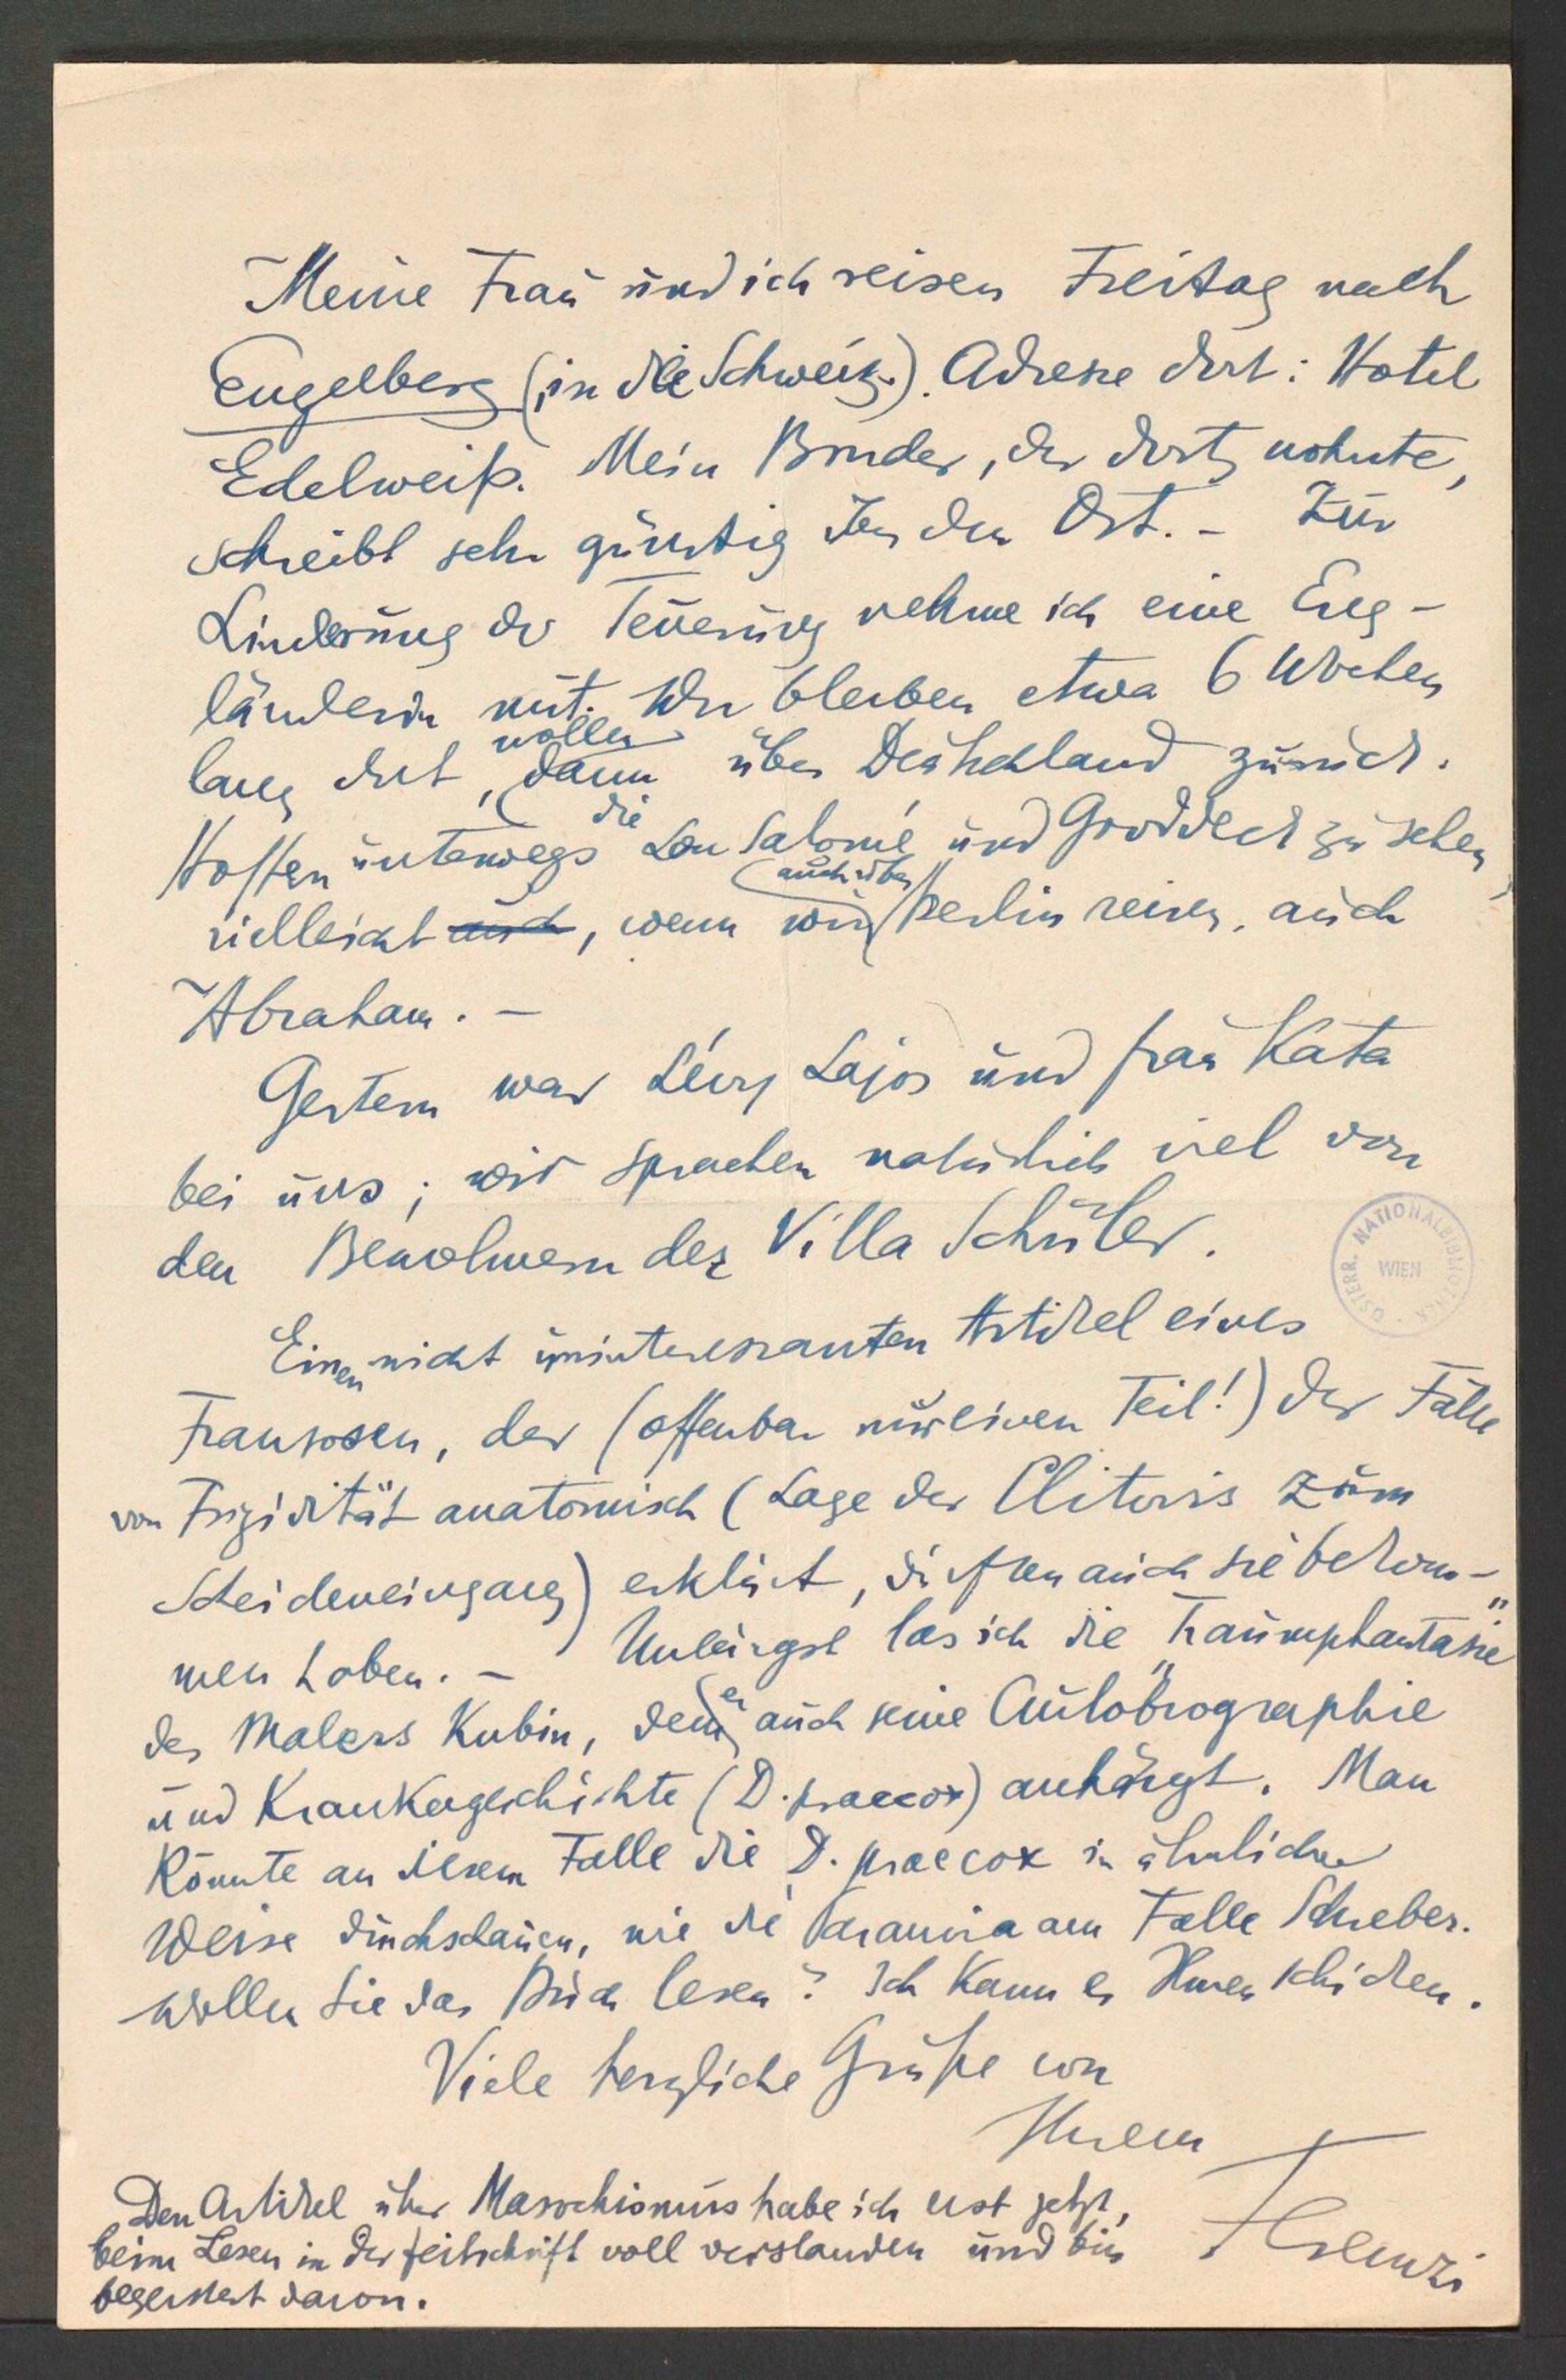 Meine Frau und ich reisen Freitag nach
Engelberg (in die Schweiz). Adresse dort: Hotel
Edelweiß. Mein Bruder, der dort wohnte,
schreibt sehr günstig über den Ort. – Zur
Linderung der Teuerung nehme ich eine Eng-
länderin mit. Wir bleiben etwa 6 Wochen
lang dort, wollen dann über Deutschland zurück.
Hoffen unterwegs die Lou Salomé und Groddeck zu sehen,
vielleicht auch, wenn wir auch über Berlin reisen, auch
Abraham. –
Gestern war Lévy Lajos und frau Kata
bei uns; wir sprachen natürlich viel von
den Bewohnern der Villa Schüler.
ÖSTERR. NATIONALBIBLIOTHEK WIEN
Einen nicht uninteressanten Artikel eines
Franzosen, der (offenbar nur einen Teil!) der Fälle
von Frigidität anatomisch (Lage der Clitoris zum
Scheideneingang) erklärt, dürften auch sie bekom-
men haben. – Unlängst las ich die „Traumphantasie"
des Malers Kubin, dem er auch seine Autobiographie
und Krankengeschichte (D. praecox) anhängt. Man
könnte an diesem Falle die D. praecox in ähnlicher
Weise durchschauen, wie die Paranoia am Falle Schreber.
Wollen Sie das Buch lesen? Ich kann es Ihnen schicken.
Viele herzliche Grüße von
Ihrem
Ferenczi
Den Artikel über Masochismus habe ich erst jetzt,
beim Lesen in der Zeitschrift voll verstanden und bin
begeistert davon.